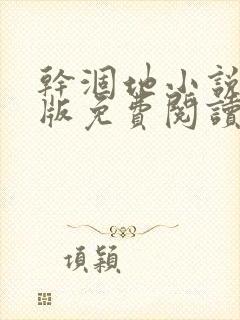 幹涸地小說
版免費閱讀
項穎